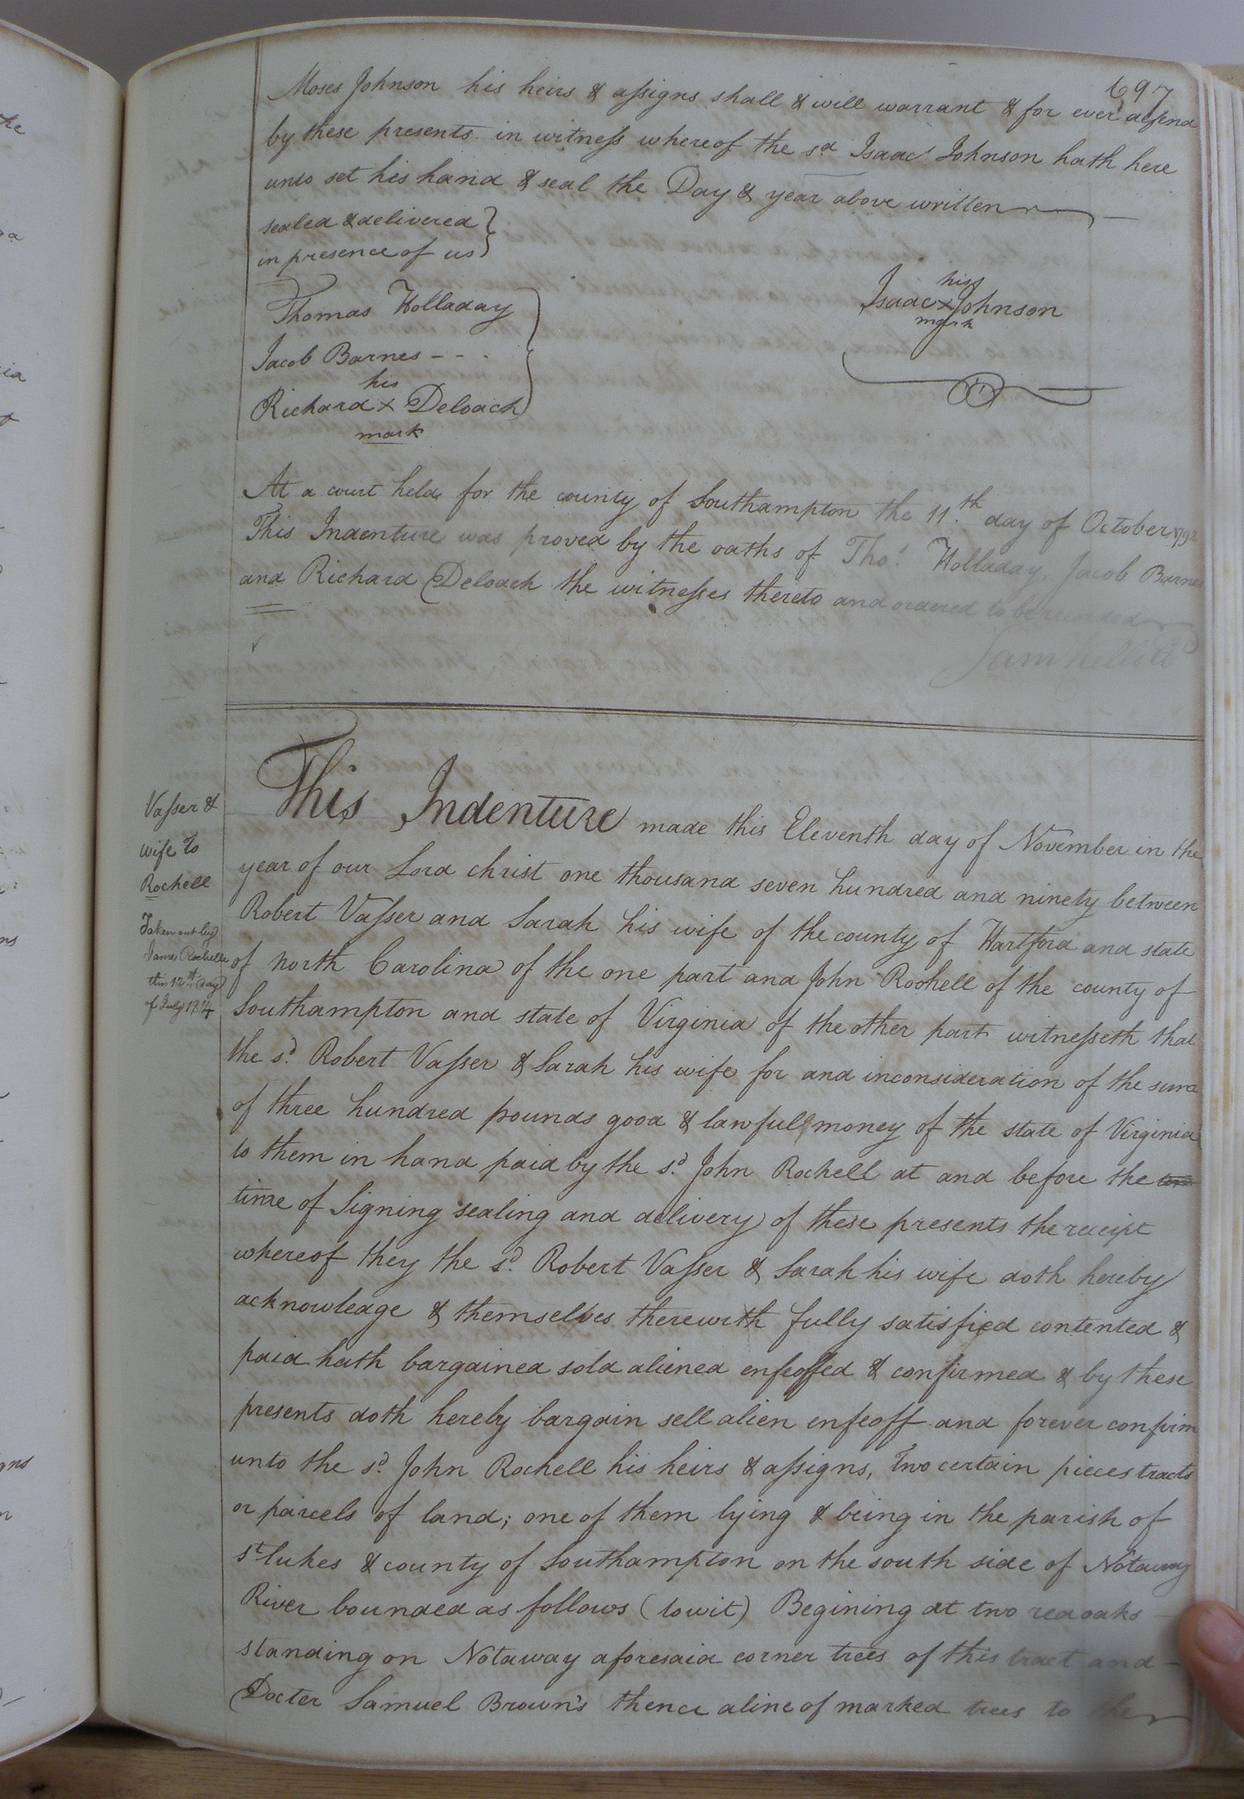 697
Moses Johnson his heirs & assigns shall & will warrant & for ever defend
by these presents. in witness whereof the sd Isaac Johnson hath here
unto set his hand & seal the Day & year above written
sealed & delivered
in presence of us
Thomas Holladay
Jacob Barnes - - .
his
Richard x Deloach
mark
his
Isaac x Johnson
mark
At a court held for the county of Southampton the 11th day of October
This Indenture was proved by the oaths of Thos. Holladay Jacob Barnes
and Richard Deloach the witnesses thereto and ordered to be recorded
Vasser &
wife To
Rochell
Taken out by
James Rochelle
this 12th day
of July
This Indenture made this Eleventh day of November in the
year of our Lord christ one thousand seven hundred and ninety between
Robert Vasser and Sarah his wife of the county of Hartford and state
of north Carolina of the one part and John Rochell of the county of
Southampton and state of Virginia of the other part witnesseth that
the sd. Robert Vasser & Sarah his wife for and inconsideration of the sum
of three hundred pounds good & lawfull money of the state of Virginia
to them in hand paid by the sd. John Rochell at and before the
time of Signing sealing and delivery of these presents the receipt
whereof they the sd. Robert Vasser & Sarah his wife doth hereby
acknowledge & themselves therewith fully satisfied contented &
paid hath bargained sold aliened enfeoffed & confirmed & by these
presents doth hereby bargain sell alien enfeoff and forever confirm
unto the sd. John Rochell his heirs & assigns, Two certain pieces tracts
or parcels of land; one of them lying & being in the parish of
st lukes & county of Southampton on the south side of Notaway
River bounded as follows (towit) Begining at two red oaks
standing on Notaway aforesaid corner trees of this tract and
Docter Samuel Brown's thence a line of marked trees to the